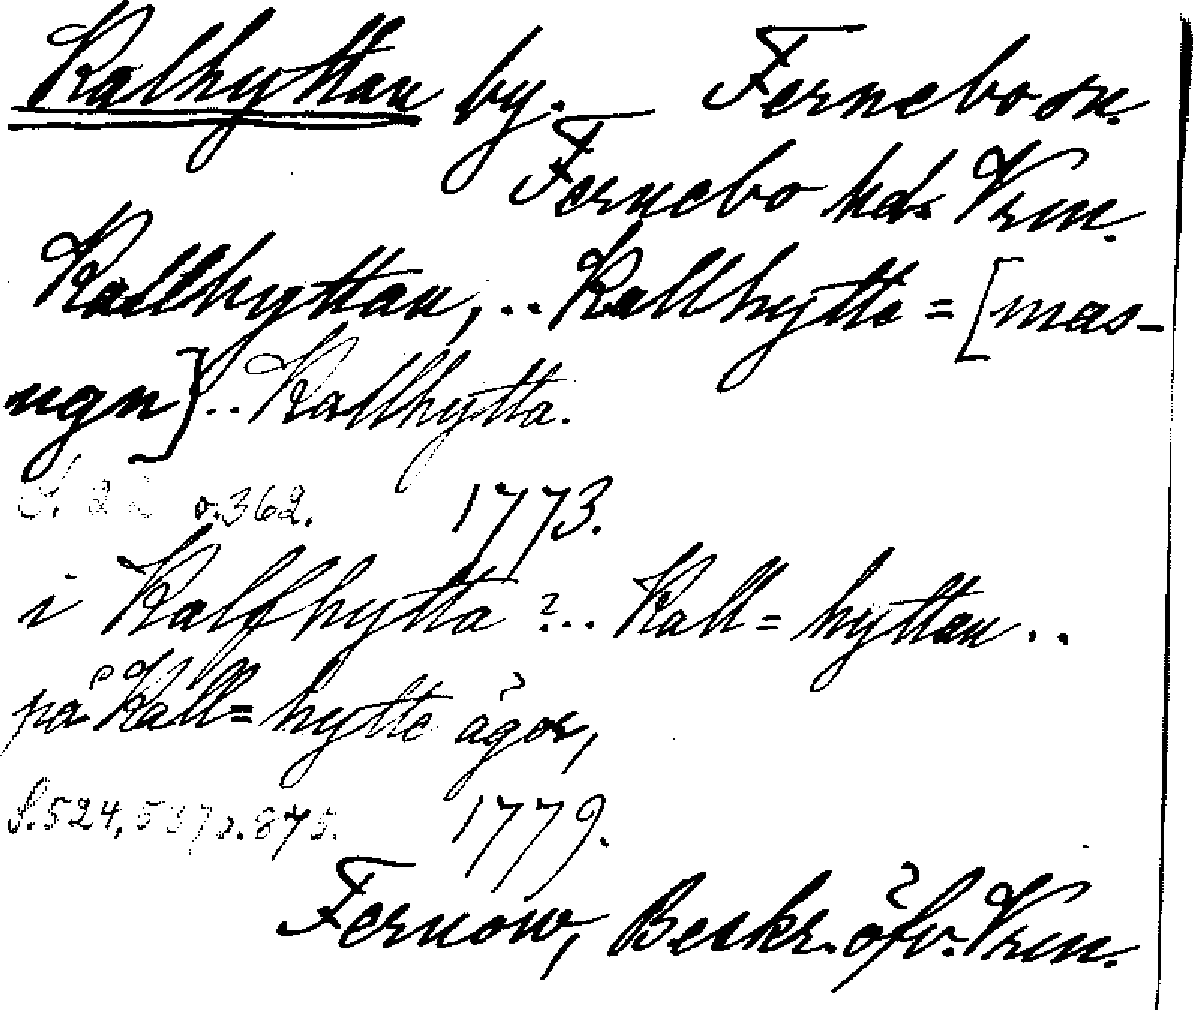 Kalhyttan by. Fernebo sn.
Fernebo hd. Vrm.
Kallhyttan, .. Kallhytte = [mas-
ugn] .. Kallhytta.
S. o. 362. 1773.
i Kalfhytta ? .. Kall = hyttan ..
på Kall = hytte ägor,
S. 524, 537 o. 875. 1779.
Fernow, Beskr. öfv. Vrm.